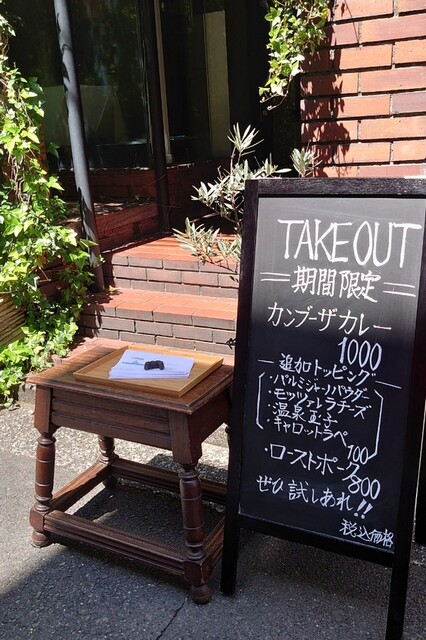 TAKE OUT
期間限定
カンブーザカレー
1000
追加トッピング
・パルミジャーノパウダー
・モッツァレラチーズ
・温泉玉子
・キャロットラペ
100
・ローストポーク
800
ぜひ試しあれ!!
税込価格